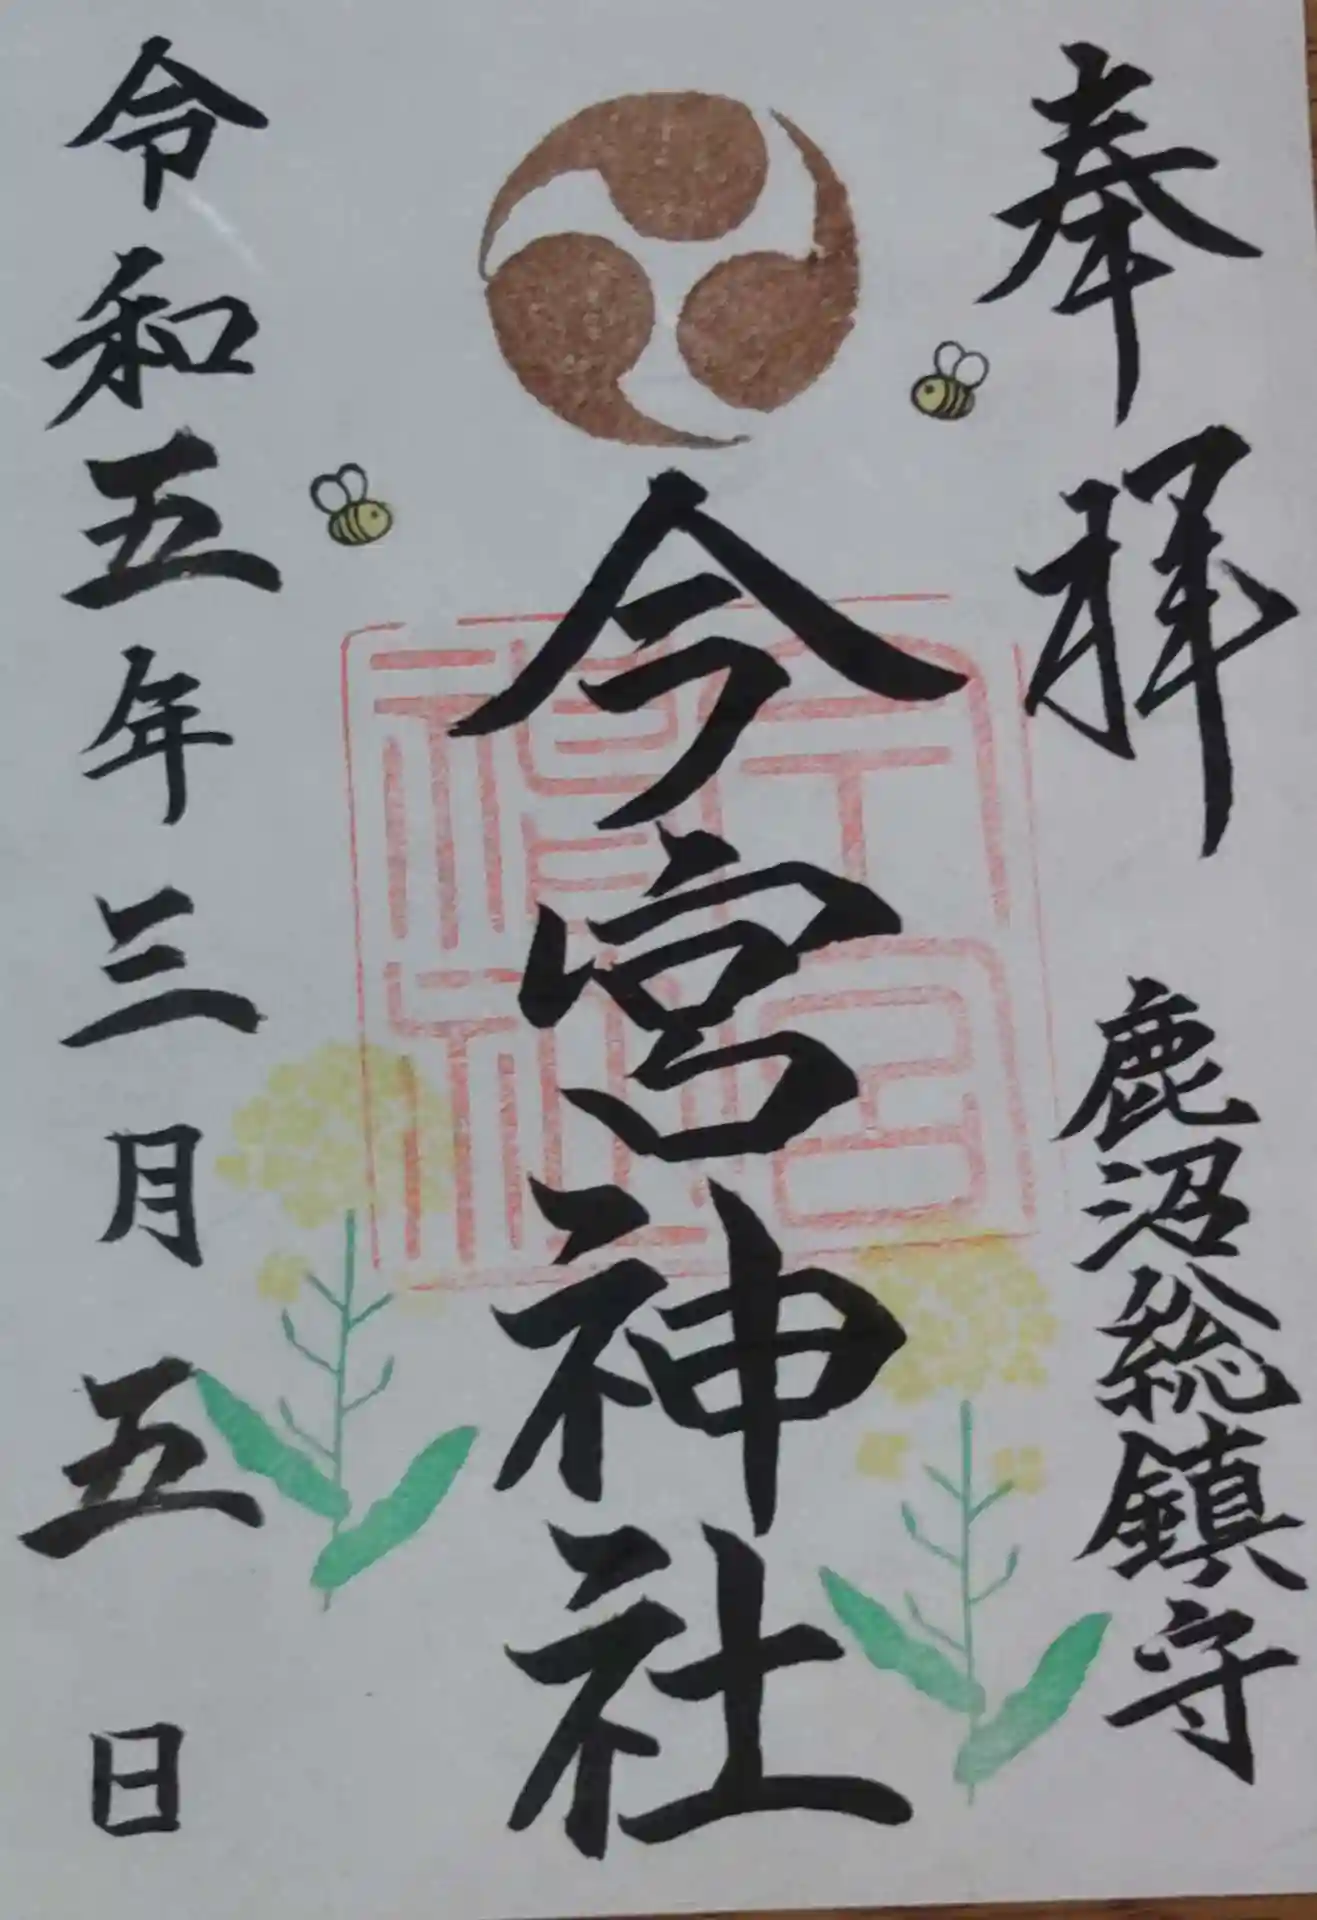 奉拝
鹿沼総鎮守
今宮神社
今宮神社
令和五年三月五日